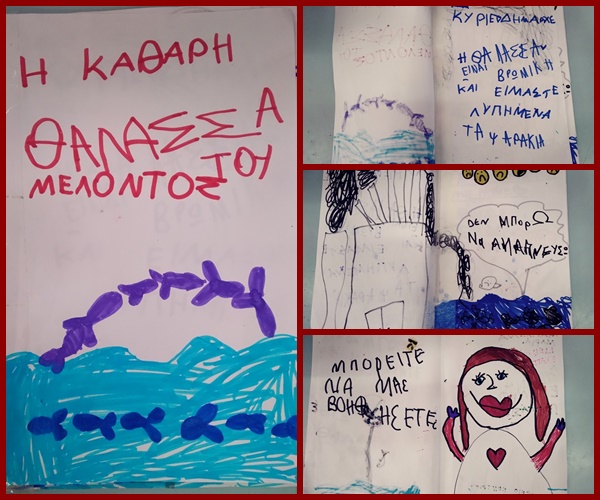 Η ΚΑΘΑΡΗ
ΘΑΛΑΣΣΑ
ΤΟΥ
ΜΕΛΟΝΤΟΣ
ΚΥΡΙΕ ΔΗΜΑΡΧΕ
Η ΘΑΛΑΣΣΑ
ΕΙΝΑΙ ΒΡΩΜΙΚΗ
ΚΑΙ ΕΙΜΑΣΤΕ
ΛΥΠΗΜΕΝΑ
ΤΑ ΨΑΡΑΚΙΑ
ΔΕΝ ΜΠΟΡΩ
ΝΑ ΑΝΑΠΝΕΥΣΩ
ΜΠΟΡΕΙΤΕ
ΝΑ ΜΑΣ
ΒΟΗΘΗΣΕΤΕ